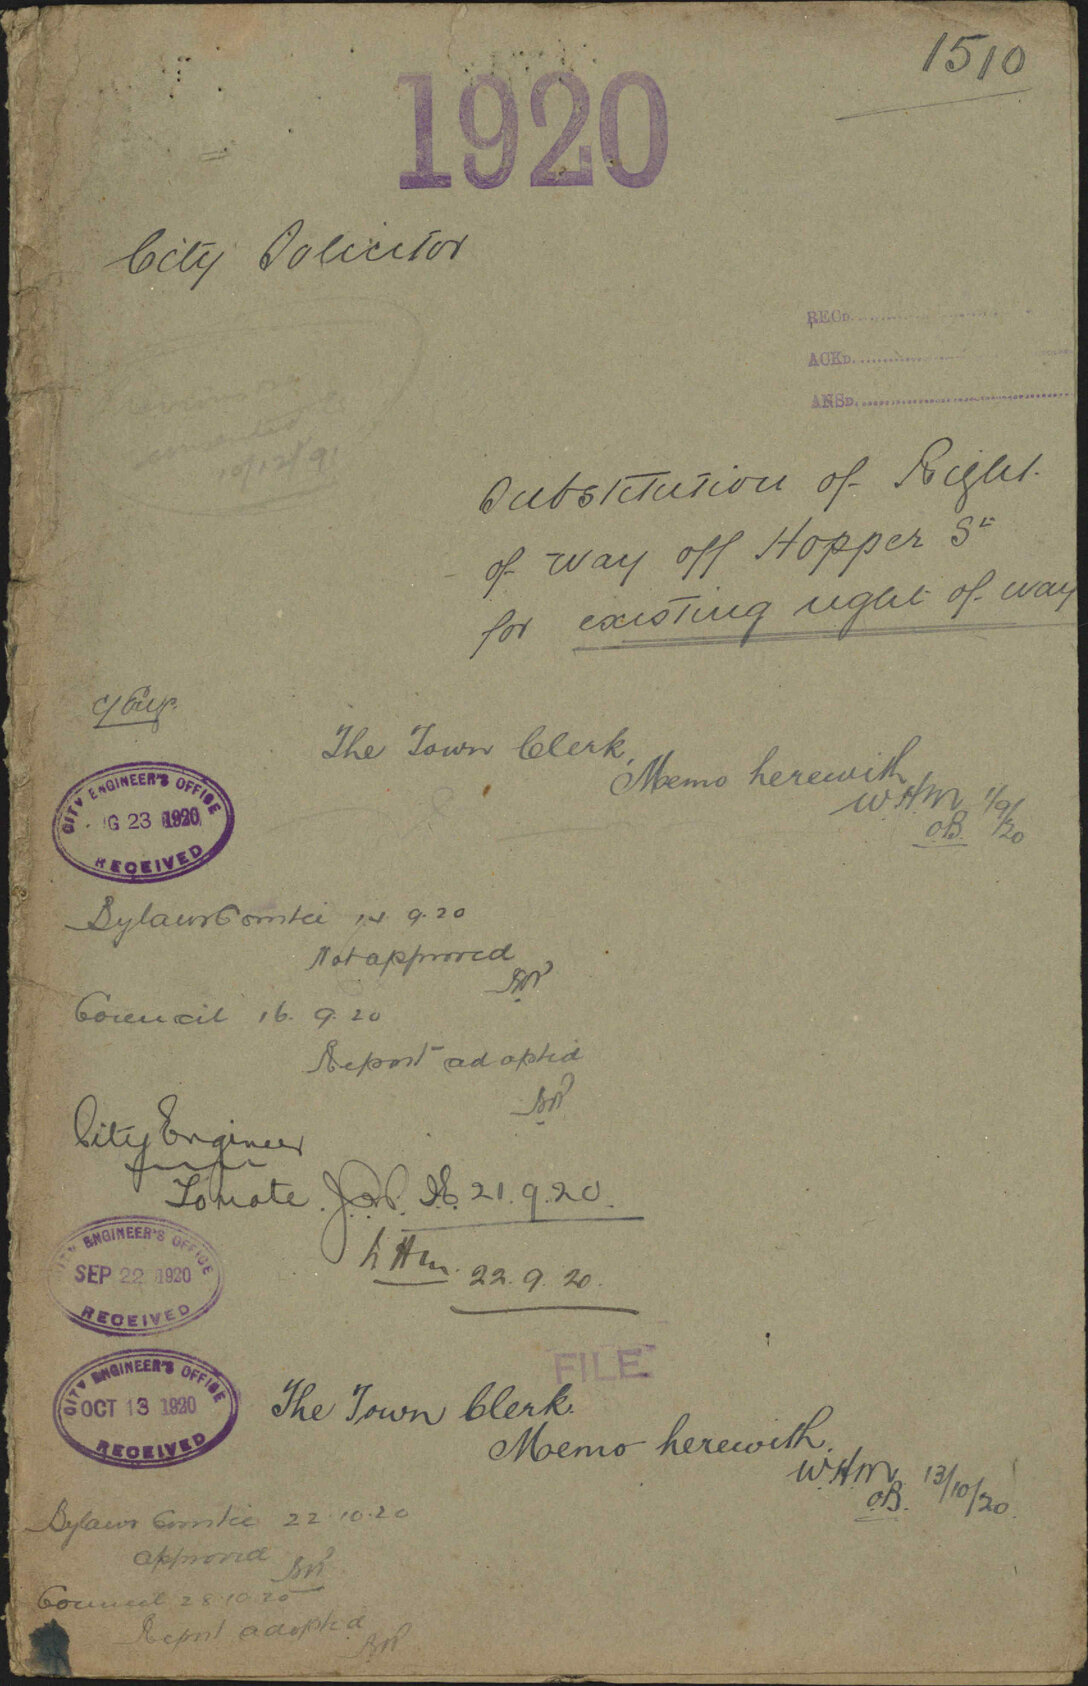 1510
1920
City Solicitor
RECD.
ACKD.
ANSD.
Substitution of Right
of way off Hopper St
for existing right of way
C/Eng.
The Town Clerk,
Memo herewith
W.H.M 1/9/20
OB.
CITY ENGINEER'S OFFICE
G 23 1920
RECEIVED
Bylaws Comtee 14 9.20
Not approved
Council 16. 9.20
Report adopted
City Engineer
To note. 21.9.20.
22.9.20.
CITY ENGINEER'S OFFICE
SEP 22 1920
RECEIVED
FILE
CITY ENGINEER'S OFFICE
OCT 13 1920
RECEIVED
The Town Clerk.
Memo herewith.
W.H.M 13/10/20.
OB.
Bylaws Comtee 22.10.20
approved
Council 28.10.20
Report adopted